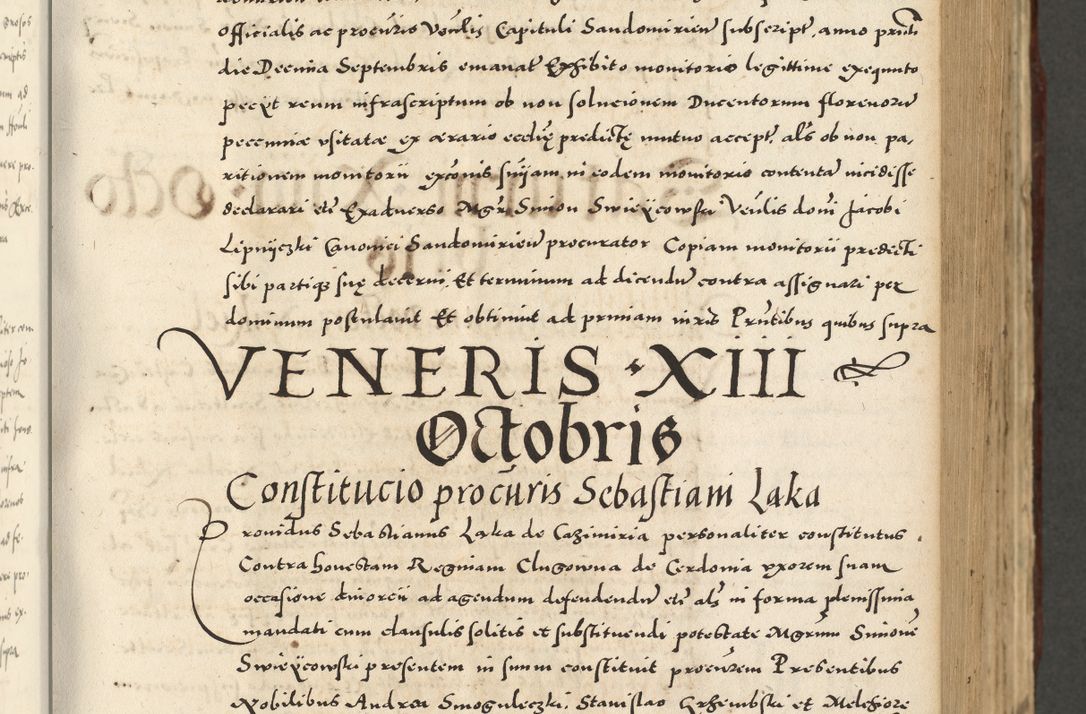 officialis ac procuris Venlis Capituli Sandomirien subscript, anno prnti
die Decima Septembris emanat Exhibito monitorio legittime exequuto
pecyt reum infrascriptum ob non solucionem Ducentorum florenoru
pecuniæ usitatæ ex ærario ecclię predictę mutuo accept, als ob non pa-
ritionem monitorii exconis sniam in eodem monitorio contenta incidisse
declarari etc Exadverso Mgr Simon Swieycowski Venlis domi Jacobi
Lipnyczki Canonici Sandomirien procurator Copiam monitorii predicti
sibi partiq3 suę decerni Et terminum ad dicendu contra assignari per
dominum postulavit Et obtinuit ad primam iuris Prntibus quibus supra
VENERIS · XIII
Octobris
Constitucio procuris Sebastiani Laka
Providus Sebastianus Laka de Cazimiria personaliter constitutus
Contra honestam Reginam Clugowna de Cerdonia uxorem suam
occasione divorcii ad agendum defendendu etc als in forma plenissima
mandati cum clausulis solitis et substituendi potestate Mgrum Simone
Swieycowski presentem in suum constituit procurem Presentibus
Nobilibus Andrea Smoguleczki, Stanislao Grzembski et Melchiore